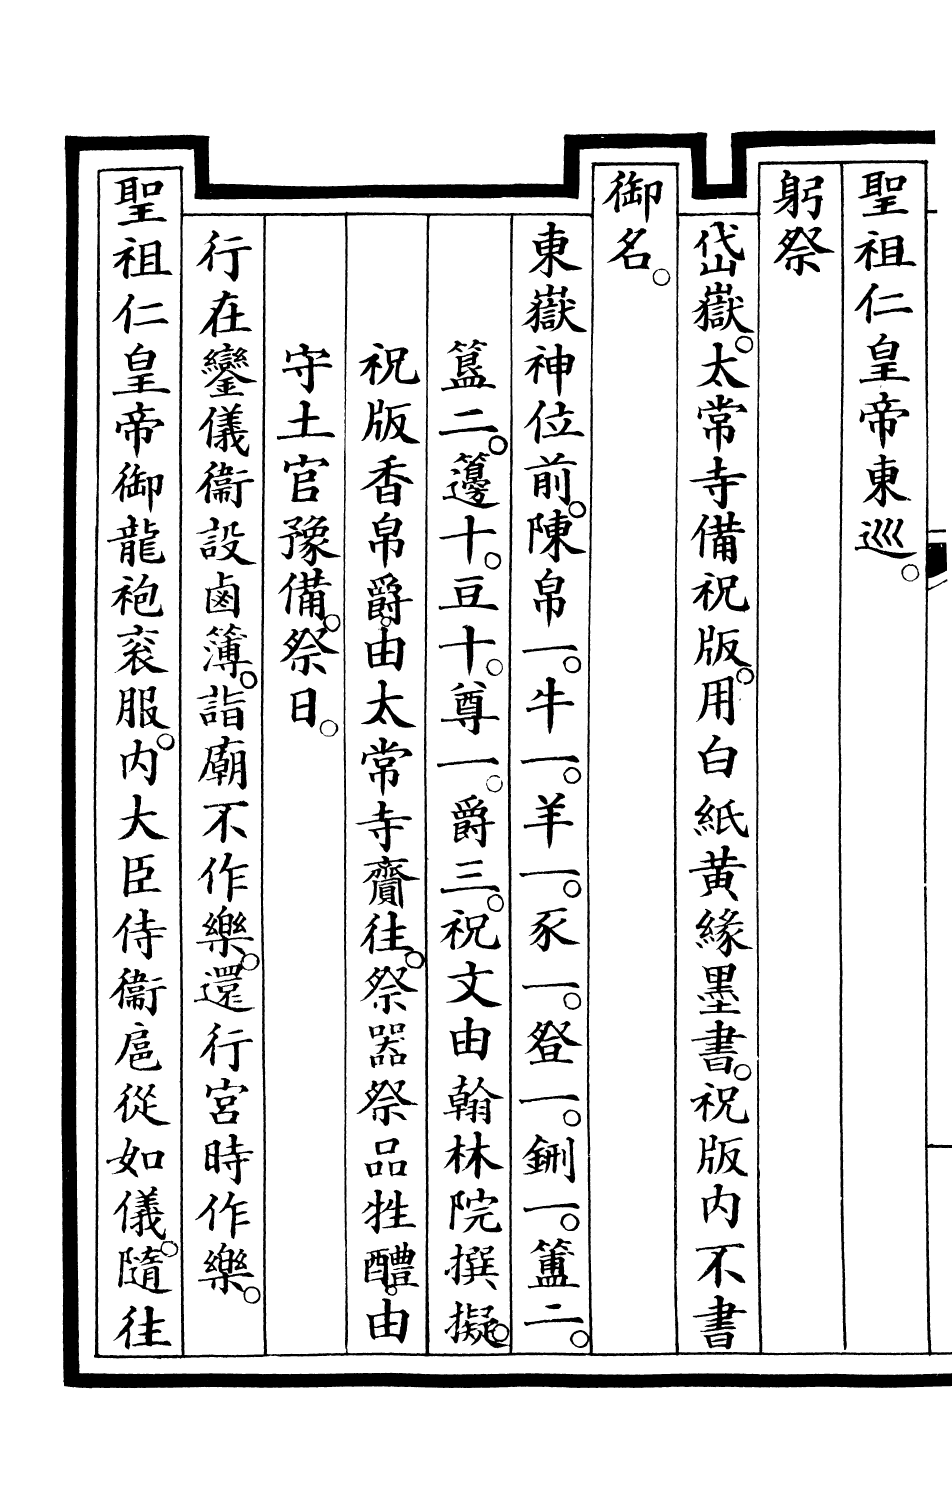 聖祖仁皇帝東巡。
躬祭
岱嶽。太常寺備祝版。用白紙黃緣墨書。祝版内不書
御名。
東嶽神位前。陳帛一。牛一。羊一。豕一。登一。鉶一。簠二。
簋二。籩十。豆十。尊一。爵三。祝文由翰林院撰擬。
祝版香帛爵。由太常寺齎往。祭器祭品牲醴。由
守土官豫備。祭日。
行在鑾儀衞設鹵簿。詣廟不作樂。還行宮時作樂。
聖祖仁皇帝御龍袍衮服。内大臣侍衞扈從如儀。隨往